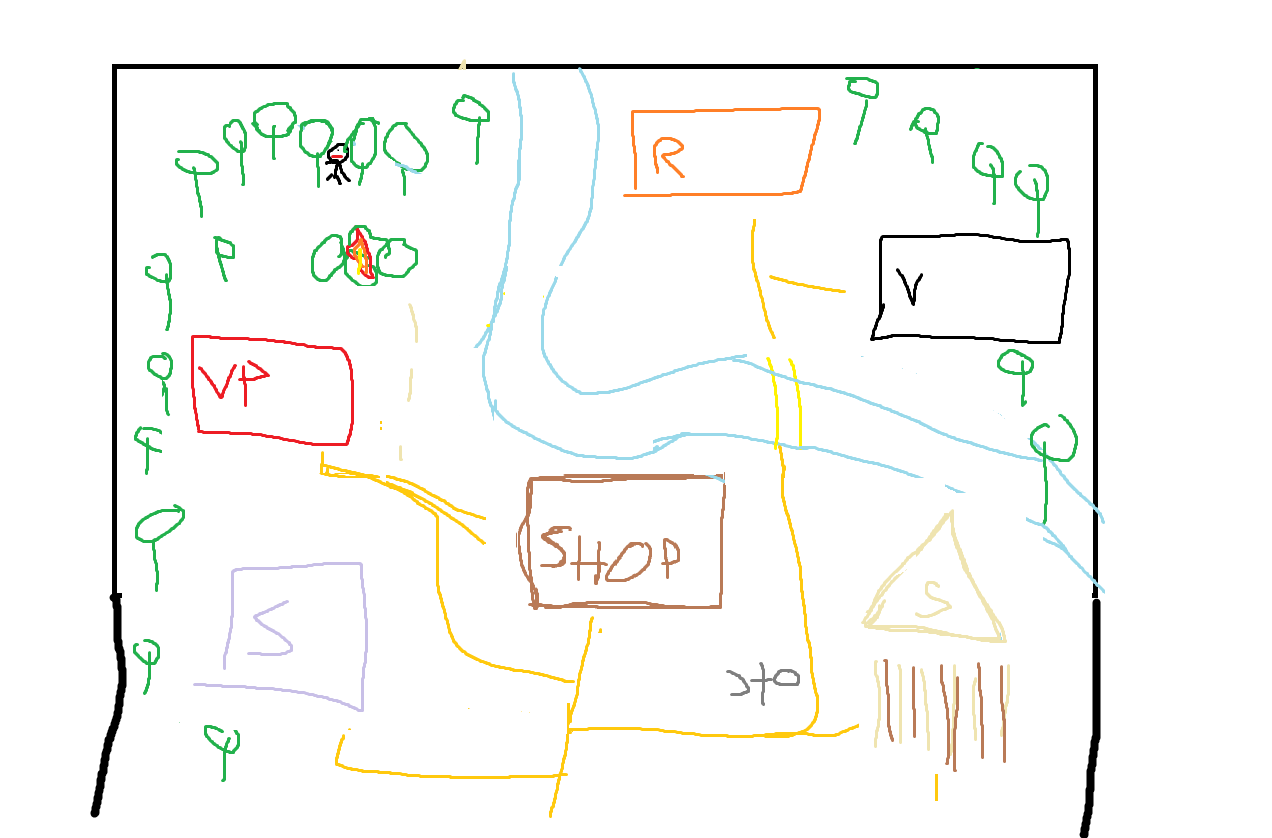 R
V
VP
SHOP
S
S